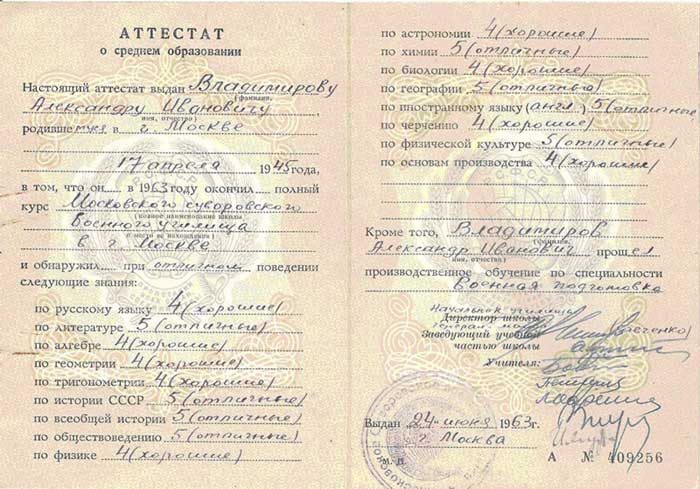 АТТЕСТАТ
о среднем образовании
Настоящий аттестат выдан Владимирову
(фамилия,
Александру Ивановичу
имя, отчество)
родившемуся в г. Москве
17 апреля 1945 года,
в том, что он в 1963 году окончил полный
курс Московского суворовского
(полное наименование школы
Военного училища
и место ее нахождения)
в г Москве
и обнаружил при отличном поведении
следующие знания:
по русскому языку 4 (хорошие)
по литературе 5 (отличные)
по алгебре 4 (хорошие)
по геометрии 4 (хорошие)
по тригонометрии 4 (хорошие)
по истории СССР 5 (отличные)
по всеобщей истории 5 (отличные)
по обществоведению 5 (отличные)
по физике 4 (хорошие)
по астрономии 4 (хорошие)
по химии 5 (отличные)
по биологии 4 (хорошие)
по географии 5 (отличные)
по иностранному языку (англ) 5 (отличные)
по черчению 4 (хорошие)
по физической культуре 5 (отличные)
по основам производства 4 (хорошие)
Кроме того, Владимиров
(фамилия,
Александр Иванович прошел
имя, отчество)
производственное обучение по специальности
Военная подготовка
Начальник училища
Директор школы
Генерал-майор
Заведующий учебной
частью школы
Учителя:
Выдан „24" июня 1963 г.
г. Москва
М. п.
А № 409256